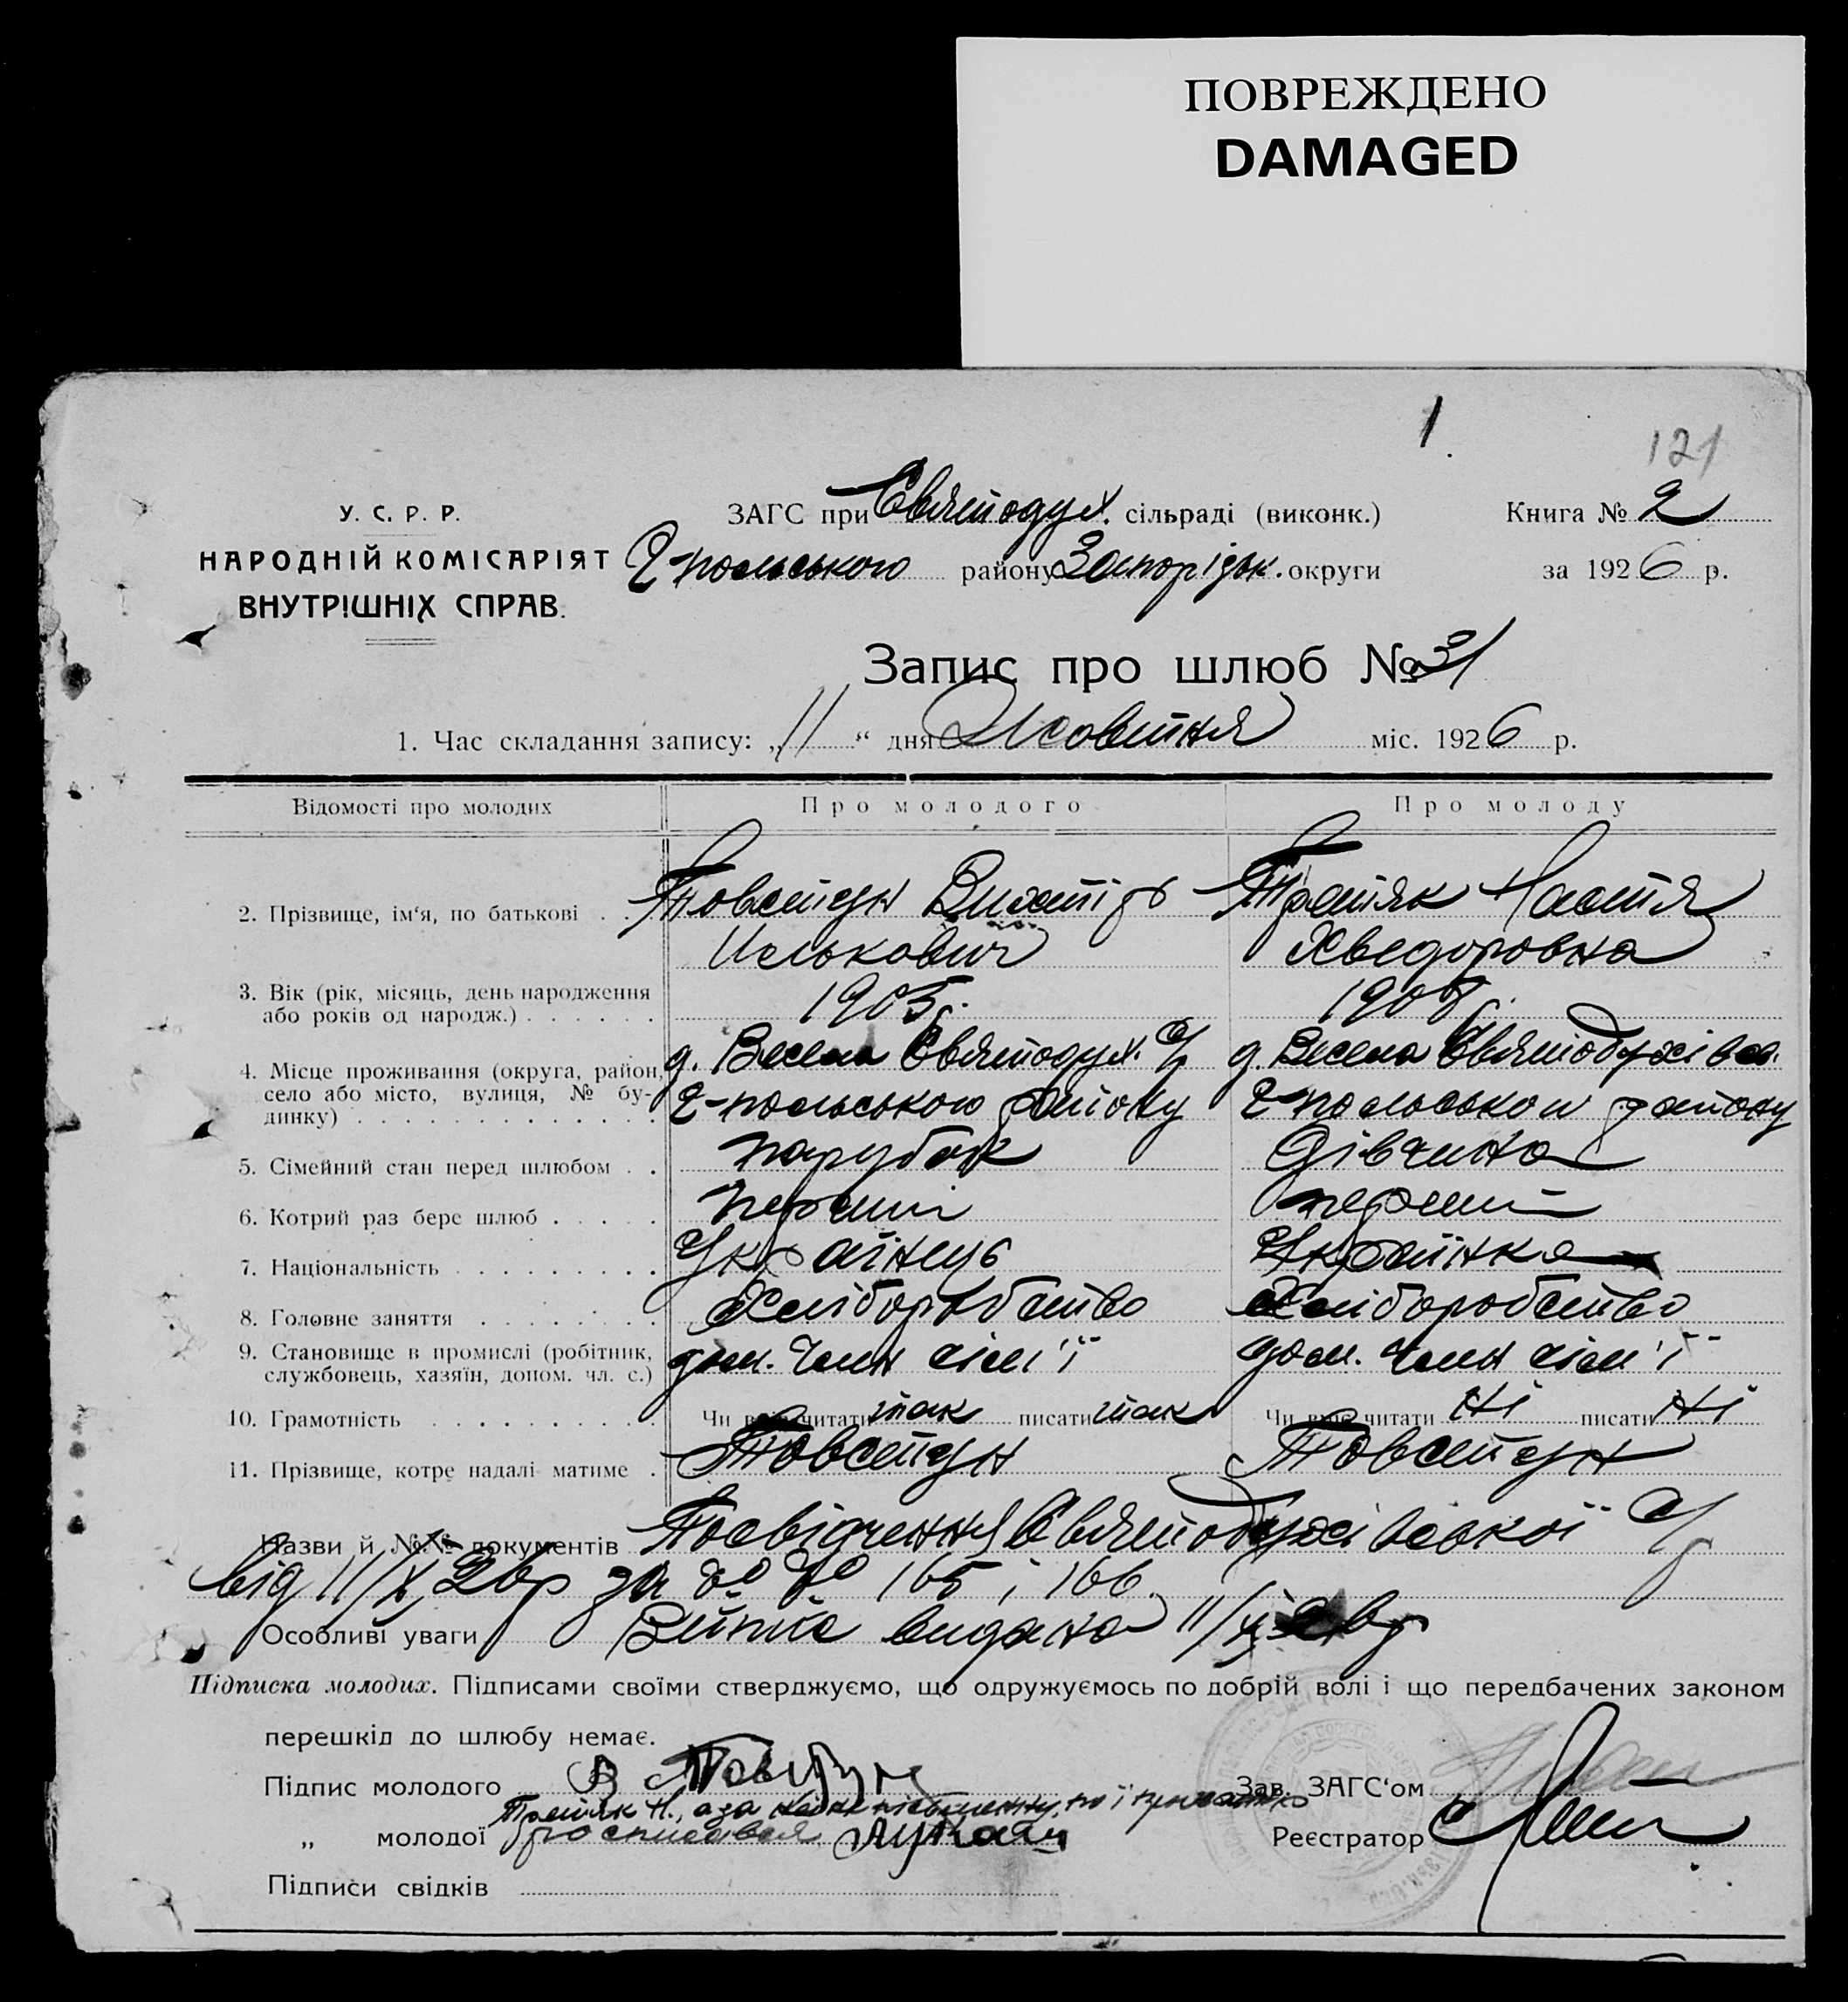 ПОВРЕЖДЕНО
DAMAGED
1.
121
У. С. Р. Р.
НАРОДНІЙ КОМІСАРІЯТ
ВНУТРІШНІХ СПРАВ.
ЗАГС при Святодух. сільраді (виконк.)
Г-польського району Запоріжк. округи
Книга № 2
за 1926 р.
Запис про шлюб № 31
1. Час складання запису: „11“ дня Жовтня міс. 1926 р.
Відомості про молодих Про молодого Про молоду
2. Прізвище, ім‘я, по батькові . . Товстун Настя
Илькович Хведоровна
3. Вік (рік, місяць, день народження
або років од народж.) . . . . . . 1905 р. 1908 р.
4. Місце проживання (округа, район, д. Весела Святодух. С/р д. Весела Святодухівс.
село або місто, вулиця, № бу- Г-польського району Г-польського району
динку) . . . . . . . . . . . . .
5. Сімейний стан перед шлюбом . . парубок дівчина
6. Котрий раз бере шлюб . . . . . перший перший
7. Національність . . . . . . . . . Українець Українка
8. Головне заняття . . . . . . . . Хліборобство Хліборобство
9. Становище в промислі (робітник, дом. член сім'ї дом. член сім'ї
службовець, хазяїн, допом. чл. с.)
10. Грамотність . . . . . . . . . Чи вміє читати так писати так Чи вміє читати ні писати ні
11. Прізвище, котре надалі матиме . Товстун Товстун
Назви й №№ документів Посвідчення Святодухівської С/р
від 11/X 26р за №№ 165 і 166.
Особливі уваги Випис видана 11/X 26р
Підписка молодих. Підписами своїми стверджуємо, що одружуємось по добрій волі і що передбачених законом
перешкід до шлюбу немає.
Підпис молодого В Товстун
Н., а за по її
„ молодої росписався Лукаш
Зав. ЗАГС‘ом
Реєстратор
Підписи свідків